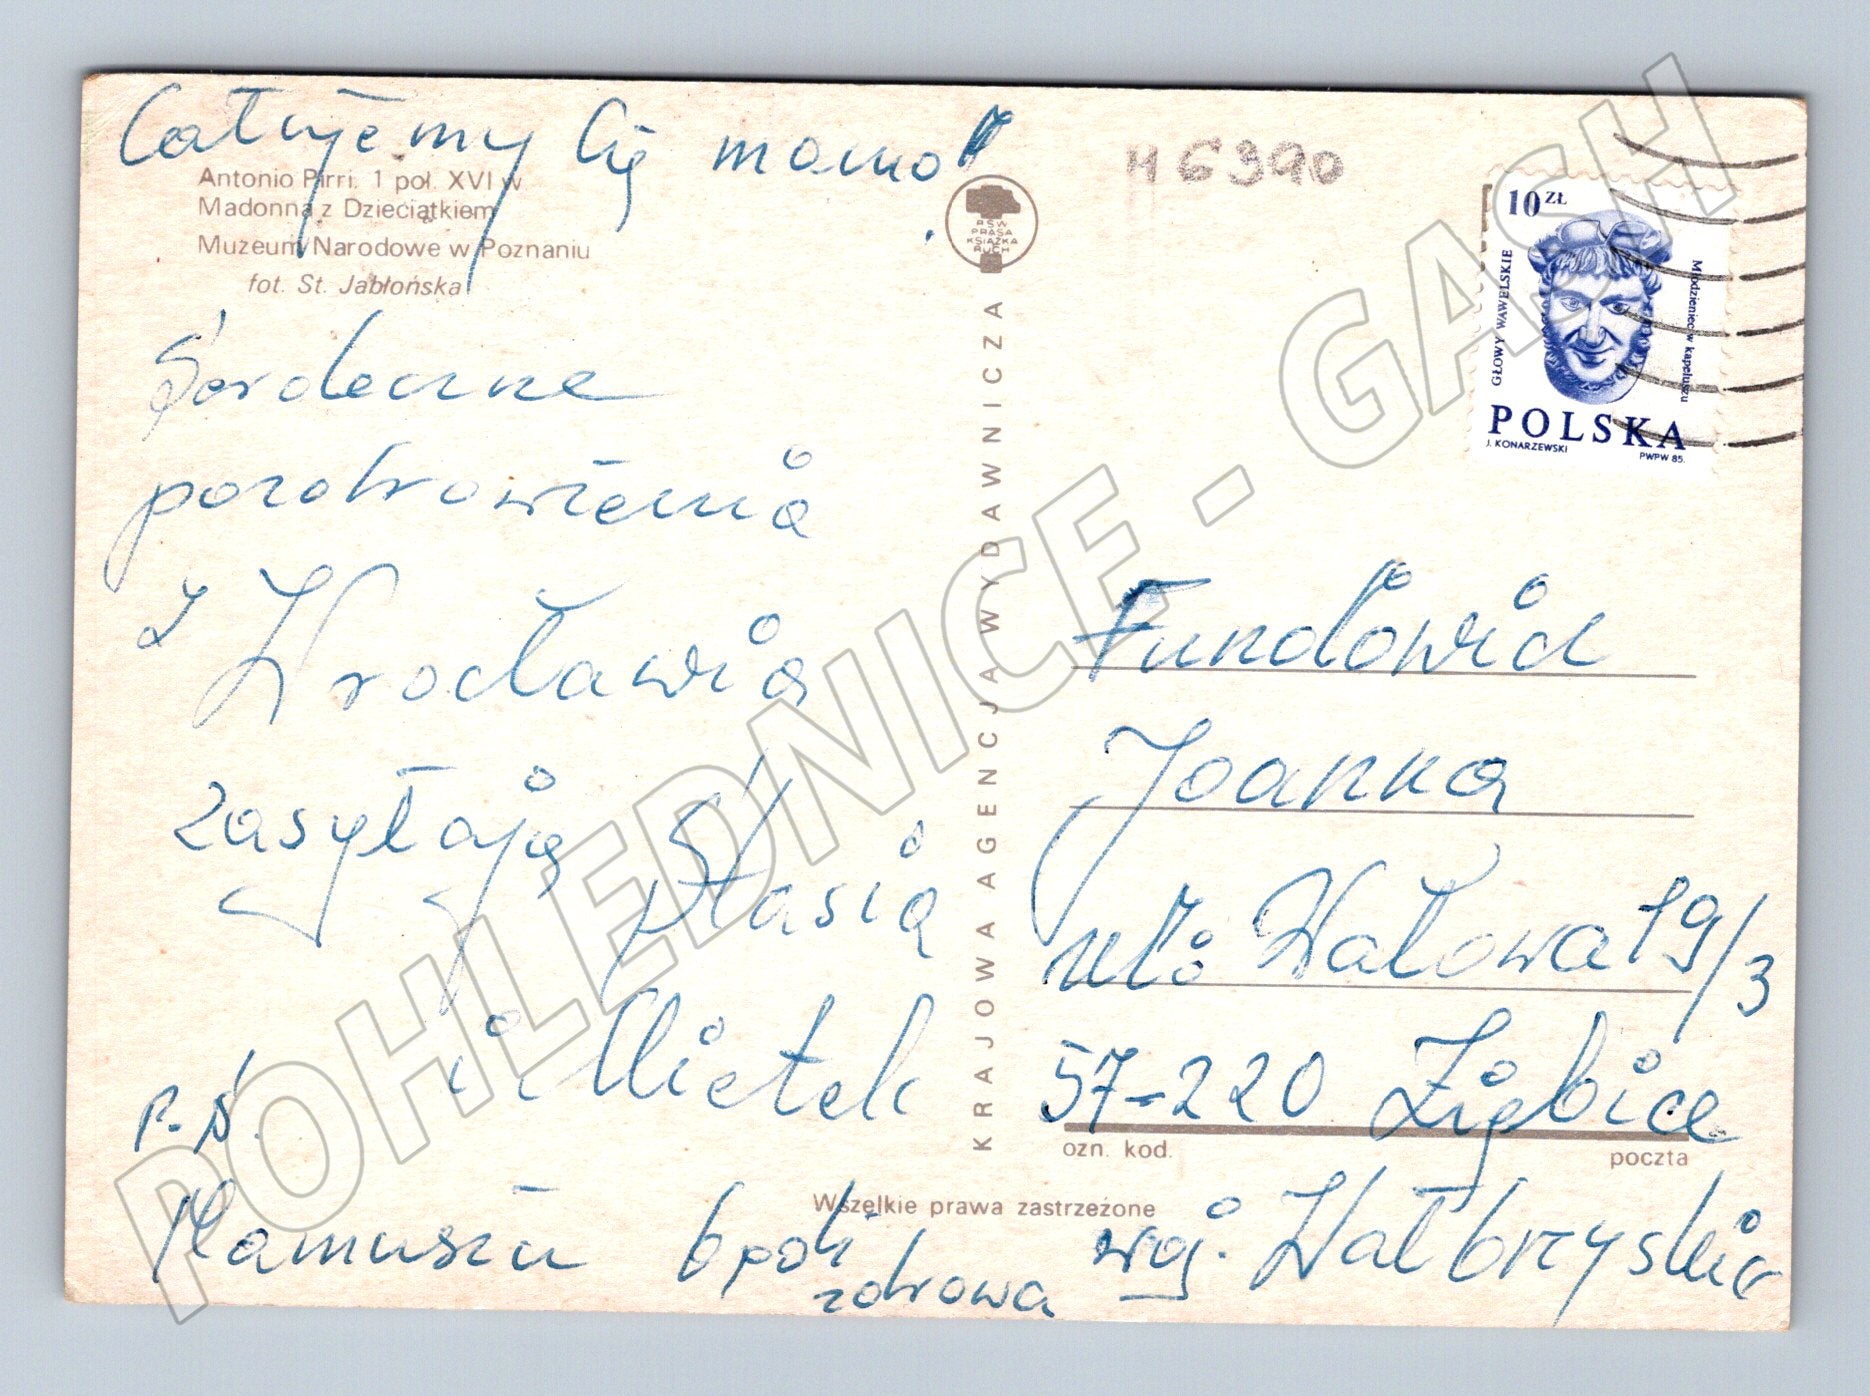 Całujemy Cię mamo!
Antonio Pirri. 1 poł. XVI w
Madonna z Dzieciątkiem
Muzeum Narodowe w Poznaniu
fot. St. Jabłońska
Serdeczne
pozdrowienia
z Wrocławia
zasyłają Stasia
i Mietek
P.S.
Mamusiu bądź
zdrowa
RSW
PRASA
KSIĄŻKA
RUCH
KRAJOWA AGENCJA WYDAWNICZA
Wszelkie prawa zastrzeżone
H 6390
10 ZŁ
GŁOWY WAWELSKIE
Młodzieniec w kapeluszu
POLSKA
J. KONARZEWSKI
PWPW 85.
Joanna
ul. Wałowa 19/3
57-220 Ziębice
ozn. kod.
poczta
woj. Wałbrzyskie
POHLEDNICE - GASH